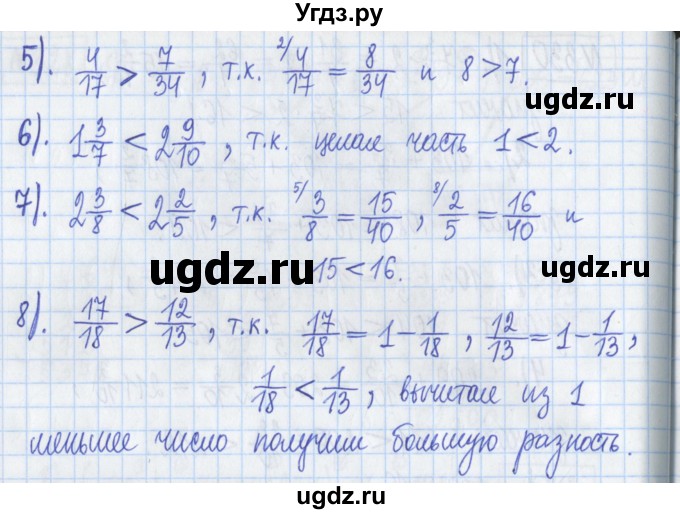 Угдз.ру
5). 4/17 > 7/34, т.к. ²⁄4/17 = 8/34 и 8 > 7.
ugdz.ru
6). 1 3/7 < 2 9/10, т.к. целая часть 1 < 2.
7). 2 3/8 < 2 2/5, т.к. ⁵⁄3/8 = 15/40, ⁸⁄2/5 = 16/40 и
ugdz.ru
15 < 16.
ugdz.ru
8). 17/18 > 12/13, т.к. 17/18 = 1 - 1/18, 12/13 = 1 - 1/13,
1/18 < 1/13, вычитая из 1
меньшее число получим большую разность.
ugdz.ru